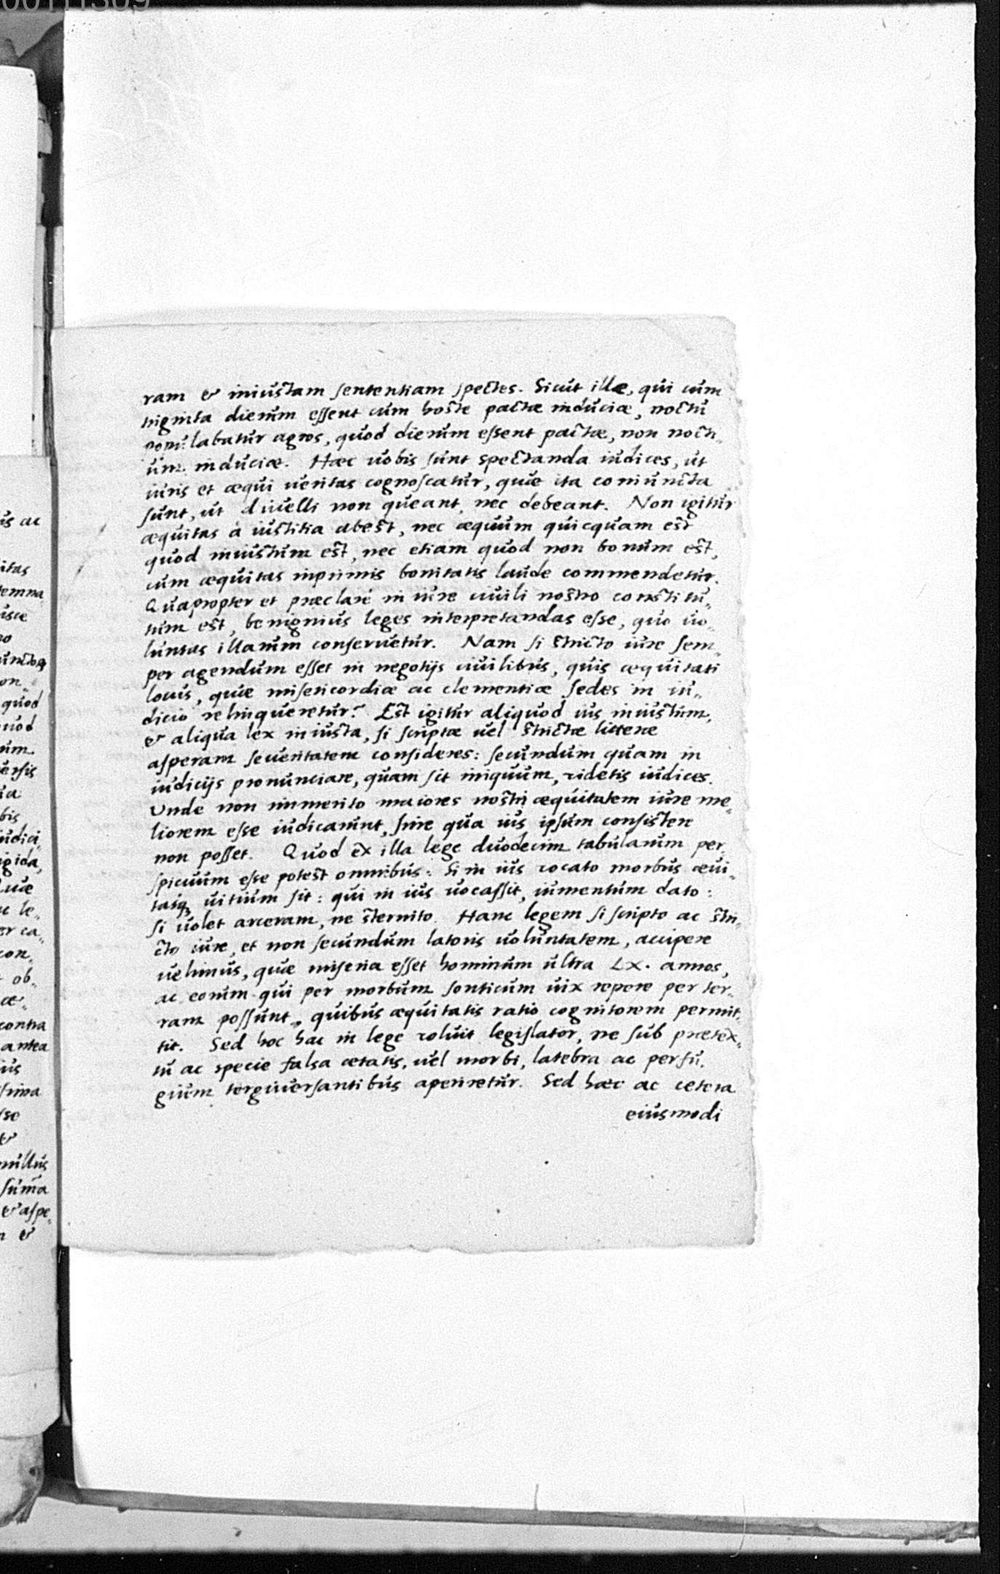 ram & iniustam sententiam spectes. Sicut ille, qui cum
triginta dierum essent cum hoste pactæ induciæ, noctu
populabatur agros, quod dierum essent pactæ, non noctu„
um induciæ. Hæc uobis sunt spectanda iudices, ut
iuris et æqui ueritas cognoscatur, quæ ita coniuncta
sunt, ut diuelli non queant nec debeant. Non igitur
æquitas à iustitia abest, nec æquum quicquam est
quod iniustum est, nec etiam quod non bonum est,
cum æquitas inprimis bonitatis laude commendetur.
Quapropter et præclare in iure ciuili nostro constitu„
tum est, benignius leges interpretandas esse, quo uo„
luntas illarum conseruetur. Nam si stricto iure sem„
per agendum esset in negotijs ciuilibus, quis æquitati
locus, quæ misericordiæ ac clementiæ sedes in iu„
dicio relinqueretur? Est igitur aliquod ius iniustum,
& aliqua lex iniusta, si scriptæ uel strictæ litteræ
asperam seueritatem consideres: secundum quam in
iudicijs pronunciare, quam sit iniquum, videtis iudices.
Unde non immerito maiores nostri æquitatem iure me„
liorem esse iudicarunt, sine qua ius ipsum consistere
non posset. Quod ex illa lege duodecim tabularum per„
spicuum esse potest omnibus: Si in ius vocato morbus æui„
tasq uitium sit: qui in ius uocassit, iumentum dato:
si uolet arceram, ne sternito. Hanc legem si scripto ac stri„
cto iure, et non secundum latoris uoluntatem, accipere
uelimus, quæ miseria esset hominum ultra LX. annos,
ac eorum qui per morbum sonticum uix repere per ter„
ram possunt, quibus æquitatis ratio cognitorem permit„
tit. Sed hoc hac in lege voluit legislator, ne sub prætex„
tu ac specie falsa ætatis, uel morbi, latebra ac perfu„
gium tergiuersantibus aperiretur. Sed hæc ac cetera
eiusmodi